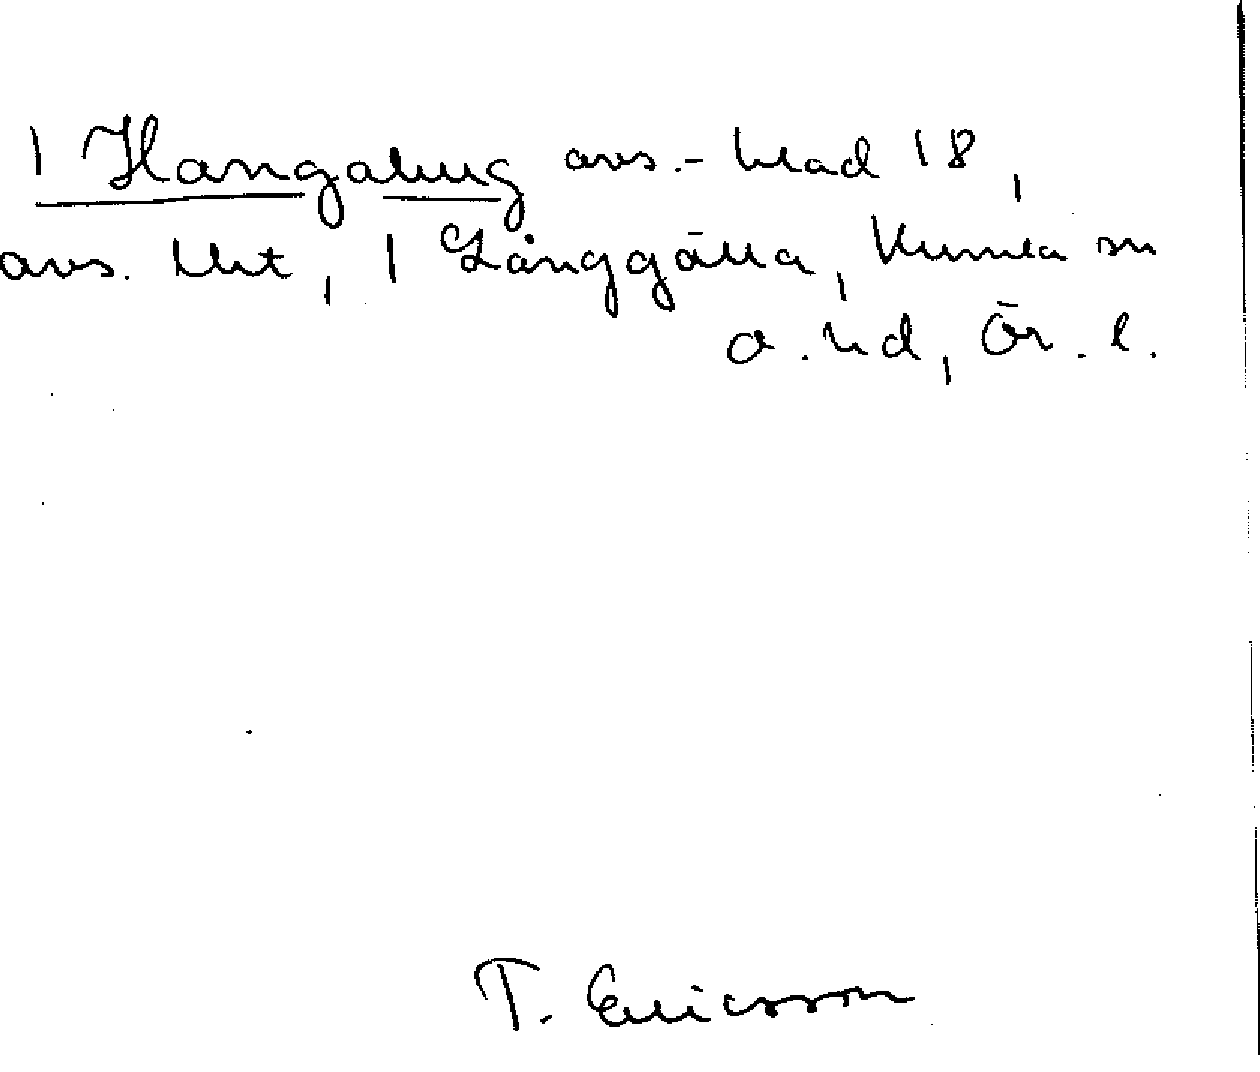 | Hangabug avs.-blad 18,
avs. Ut, | Långgälla, Kumla sn
Ö. hd, Ör. l.
T. Ericsson